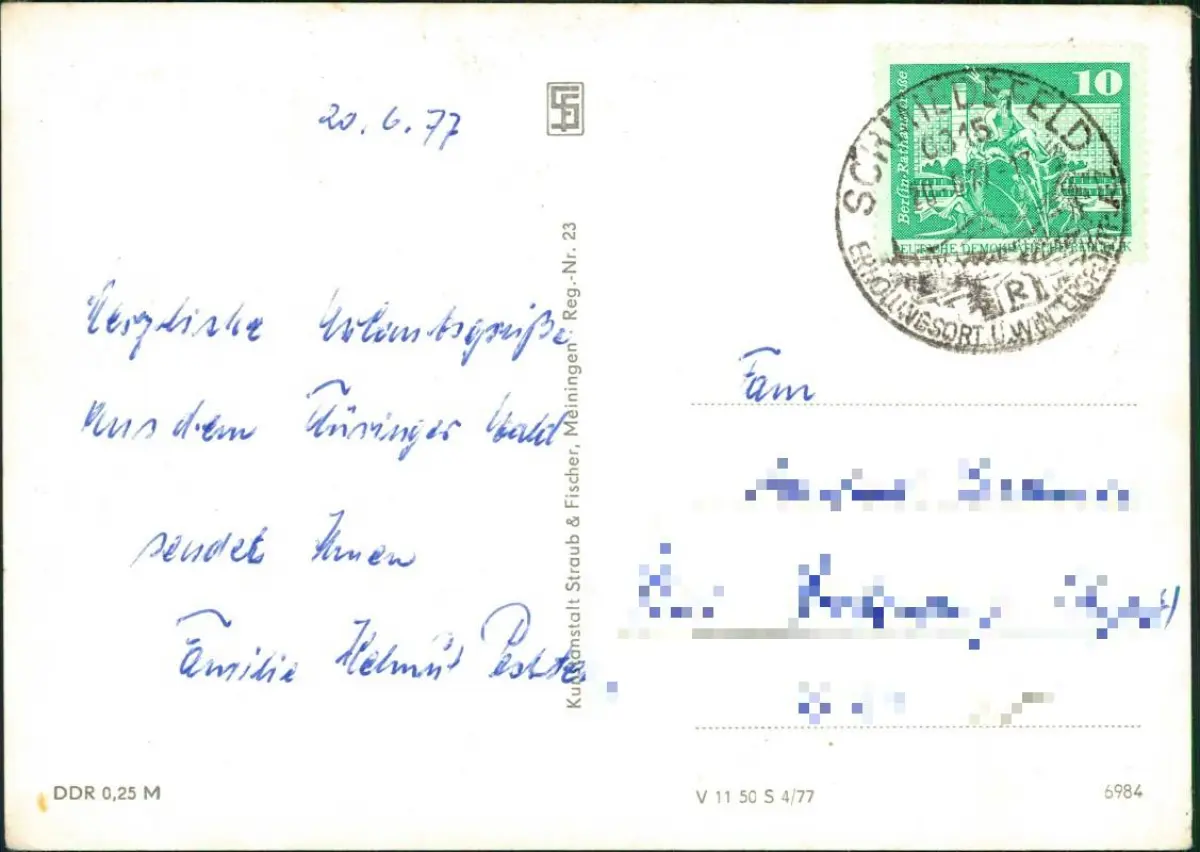 20.6.77
Herzliche Urlaubsgrüße
aus dem Thüringer Wald
sendet Ihnen
Familie Helmut
Kunstanstalt Straub & Fischer, Meiningen · Reg.-Nr. 23
10
Berlin-Rathausstraße
DEUTSCHE DEMOKRATISCHE REPUBLIK
SCHMIEDEFELD
ERHOLUNGSORT U. WINTERSPORTPLATZ
Fam
DDR 0,25 M
V 11 50 S 4/77
6984